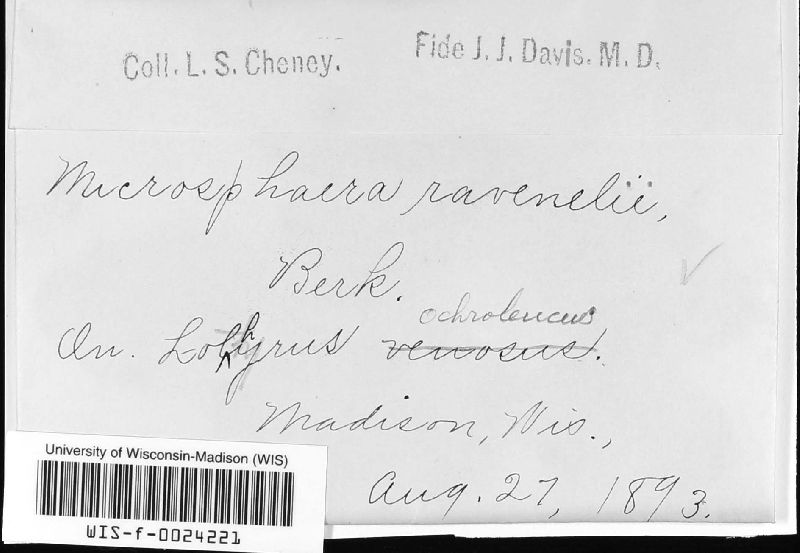 Coll. L. S. Cheney.
Fide J. J. Davis. M. D.
Microsphaera ravenelii,
Berk.
ochroleucus
On. Lathyrus venosus.
Madison, Wis.,
Aug. 27, 1893.
University of Wisconsin-Madison (WIS)
WIS-f-0024221